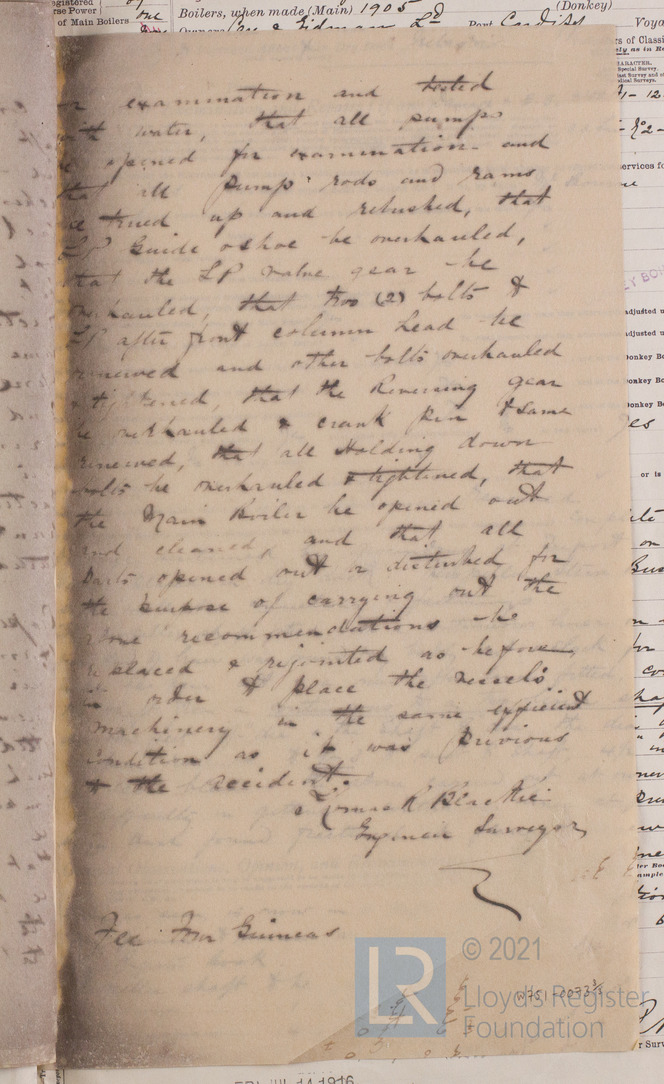 Boilers, when made (Main) 1905
(Donkey)
of Main Boilers one
Port Cardiff
Voya
examination and tested
with water, that all pumps
be opened for examination and
that all pump rods and rams
be trued up and rebushed, that
LP Guide shoe be overhauled,
that the LP valve gear be
overhauled, that two (2) bolts &
LP after front column head be
renewed and other bolts overhauled
& tightened, that the Reversing gear
be overhauled & crank pin & same
renewed, that all Holding down
bolts be overhauled & tightened, that
the Main Boiler be opened out
and cleaned, and that all
parts opened out or disturbed for
the purpose of carrying out the
above recommendations be
replaced & rejointed as before
in order to place the vessel's
machinery in the same efficient
condition as it was previous
to the accident.
R Blackie
Engineer Surveyor
Fee Four Guineas
© 2021
LR
Lloyd's Register
Foundation
W751-0033